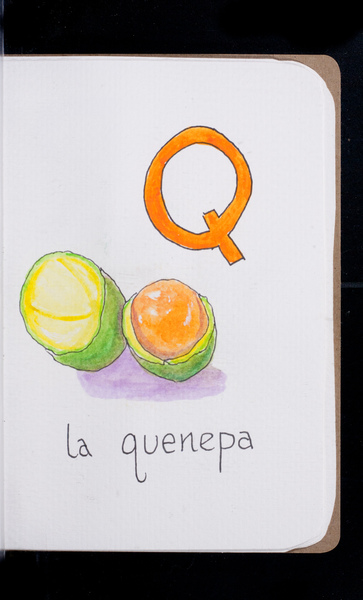 Q
la quenepa